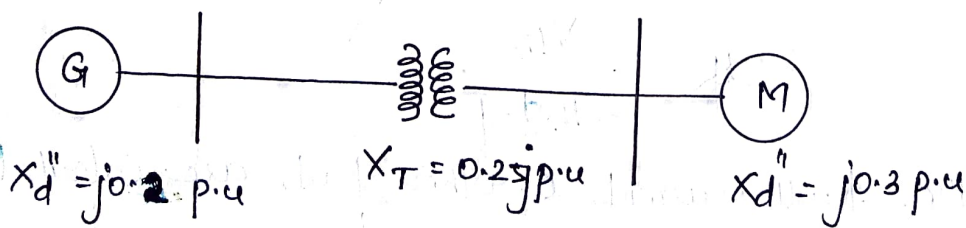 G
M
X_d'' = j0.2 p.u
X_T = 0.25j p.u
X_d'' = j0.3 p.u